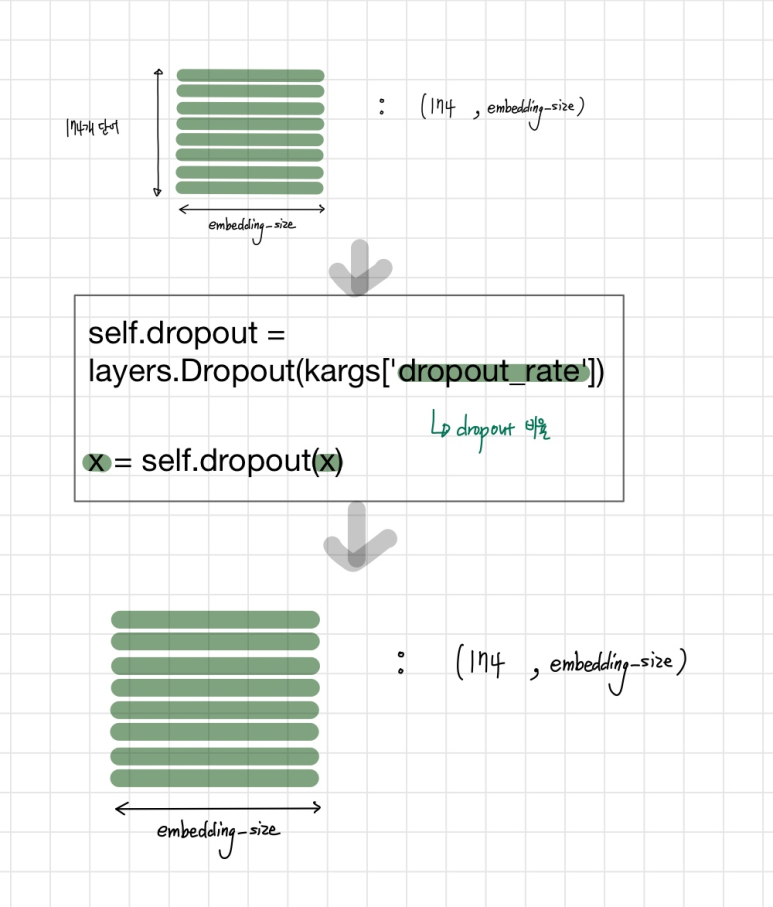 174개 단어
: (174 , embedding-size)
embedding-size
self.dropout =
layers.Dropout(kargs['dropout_rate'])
↳ dropout 비율
x = self.dropout(x)
: (174 , embedding-size)
embedding-size